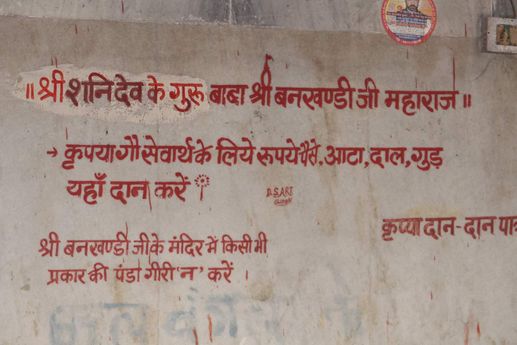 ॥ श्री शनिदेव के गुरू बाबा श्री बनखण्डी जी महाराज ॥
→ कृपया गौ सेवार्थ के लिये रूपये पैसे, आटा, दाल, गुड़
यहाँ दान करें
D.S.ART
कृप्या दान-दान पात्र
श्री बनखण्डी जी के मंदिर में किसी भी
प्रकार की पंडा गीरी 'न' करें ।